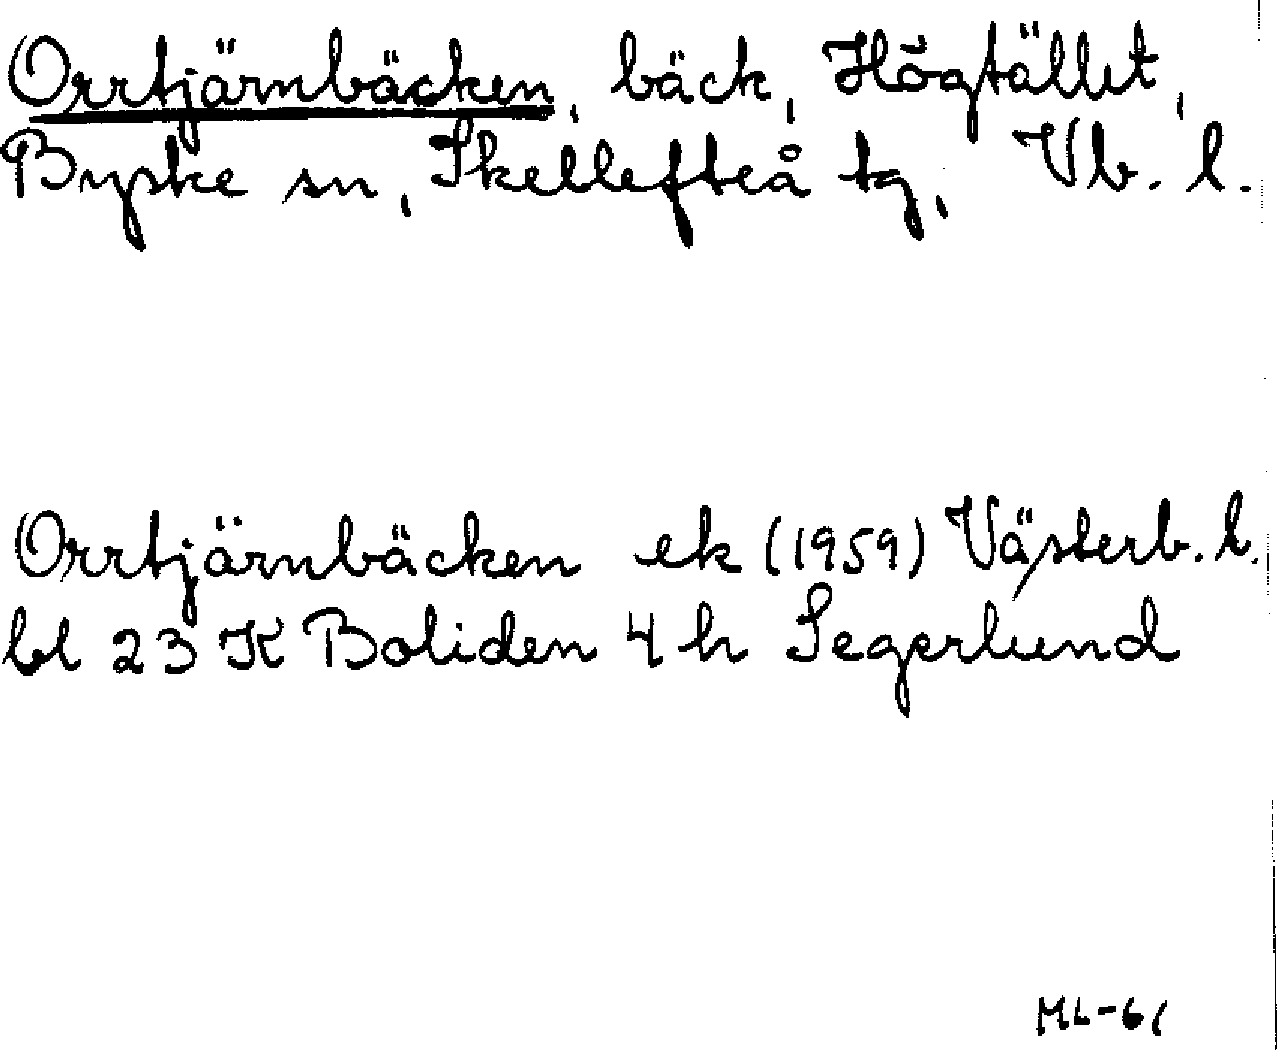 Orrtjärnbäcken, bäck, Högtället,
Byske sn, Skellefteå tg, Vb. l.
Orrtjärnbäcken ek (1959) Västerb. l.
bl 23 K Boliden 4 h Segerlund
ML-61